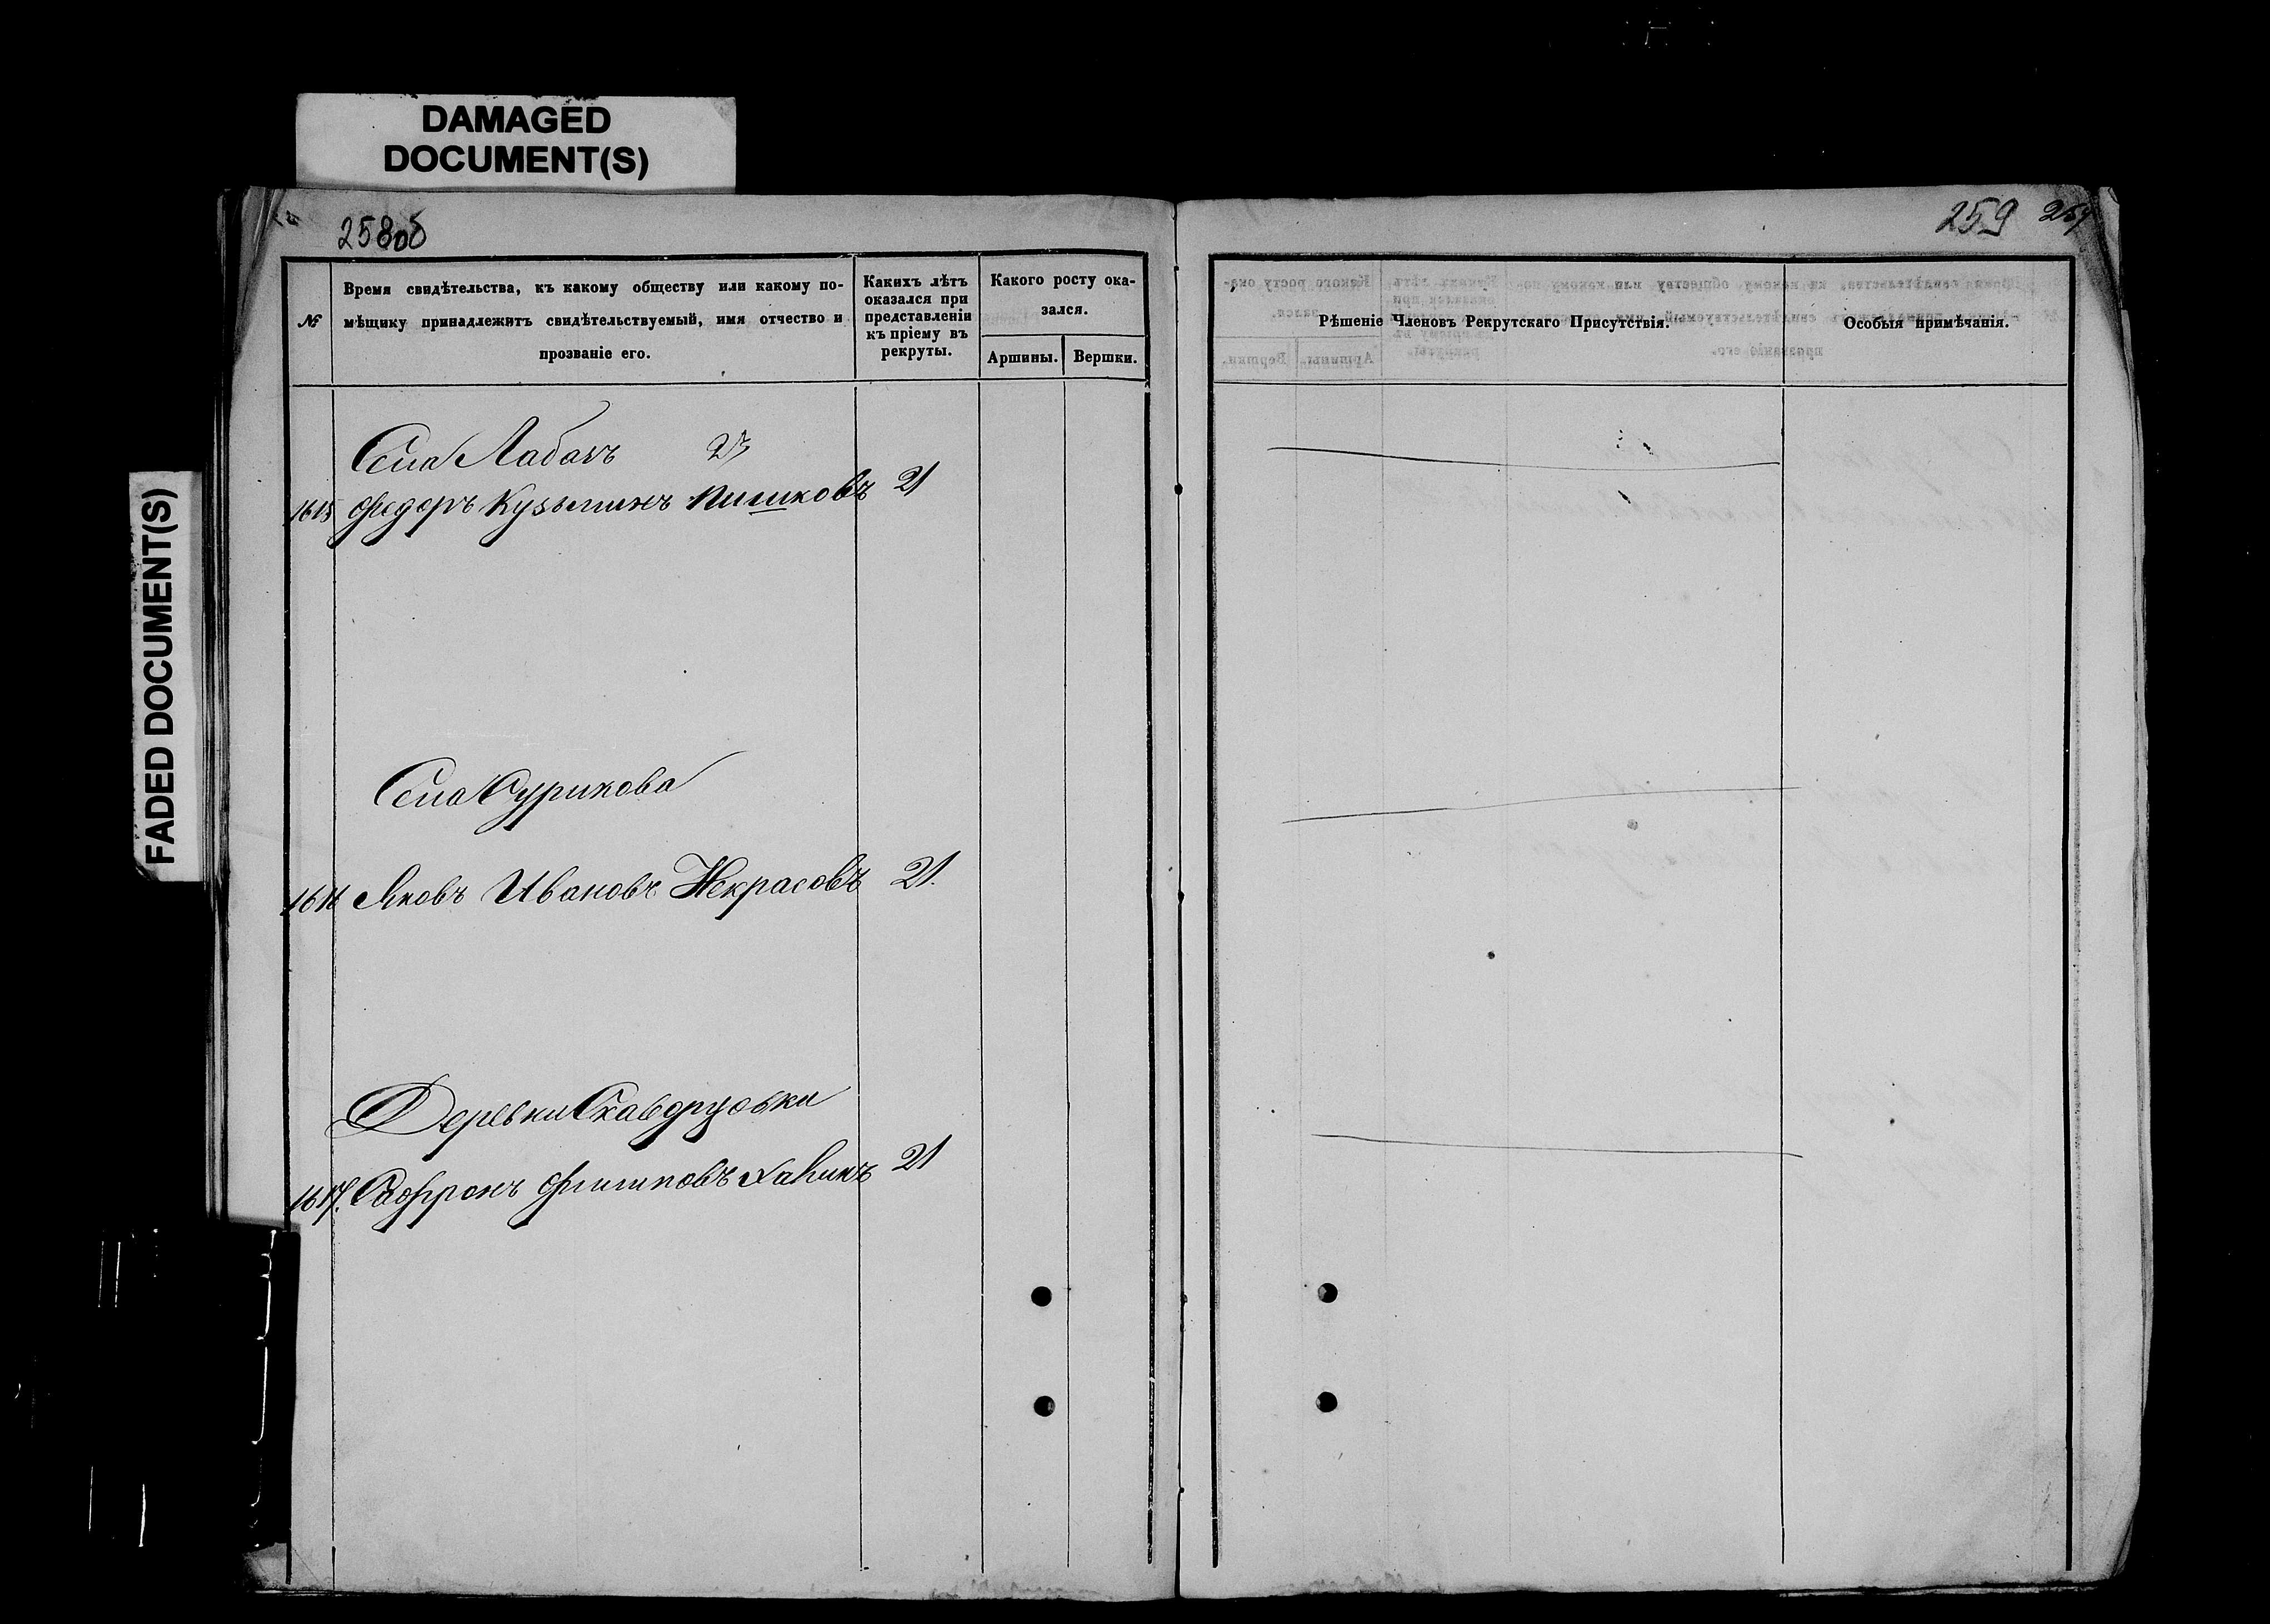 DAMAGED
DOCUMENT(S)
FADED DOCUMENT(S)
258об
№
Время свидѣтельства, къ какому обществу или какому по-
мѣщику принадлежитъ свидѣтельствуемый, имя отчество и
прозваніе его.
Какихъ лѣтъ
оказался при
представленіи
къ пріему въ
рекруты.
Какого росту ока-
зался.
Аршины.
Вершки.
Села
1615 Федоръ Кузьминъ Пишковъ 21
Села Сурикова
1616 Яковъ Ивановъ Некрасовъ 21.
Деревни
1617. Сафронъ Филиповъ 21
259
Рѣшеніе Членовъ Рекрутскаго Присутствія.
Особыя примѣчанія.